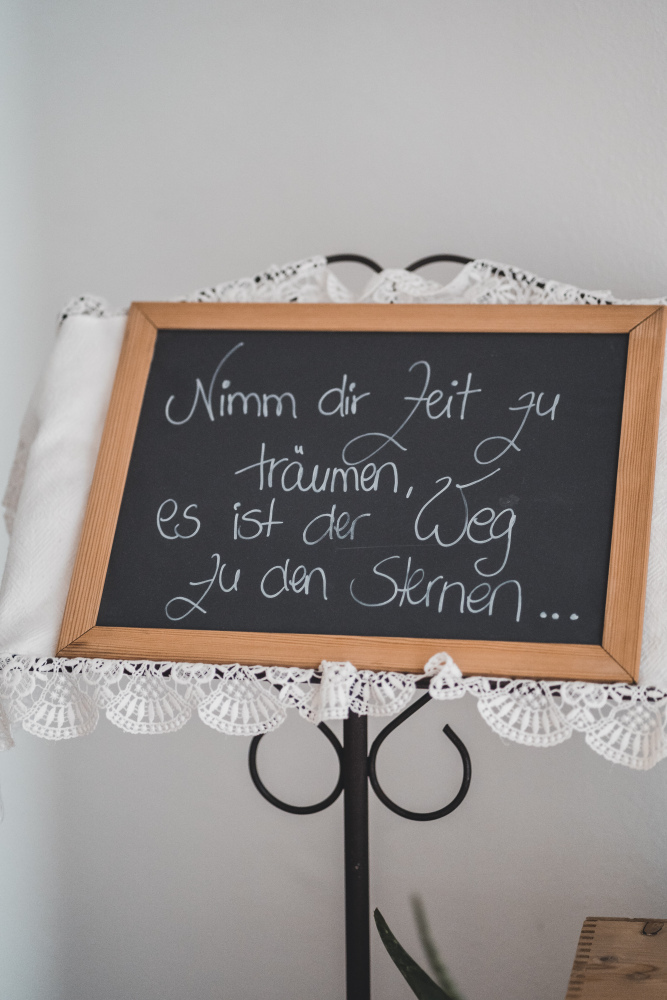 Nimm dir Zeit zu
träumen,
es ist der Weg
zu den Sternen...